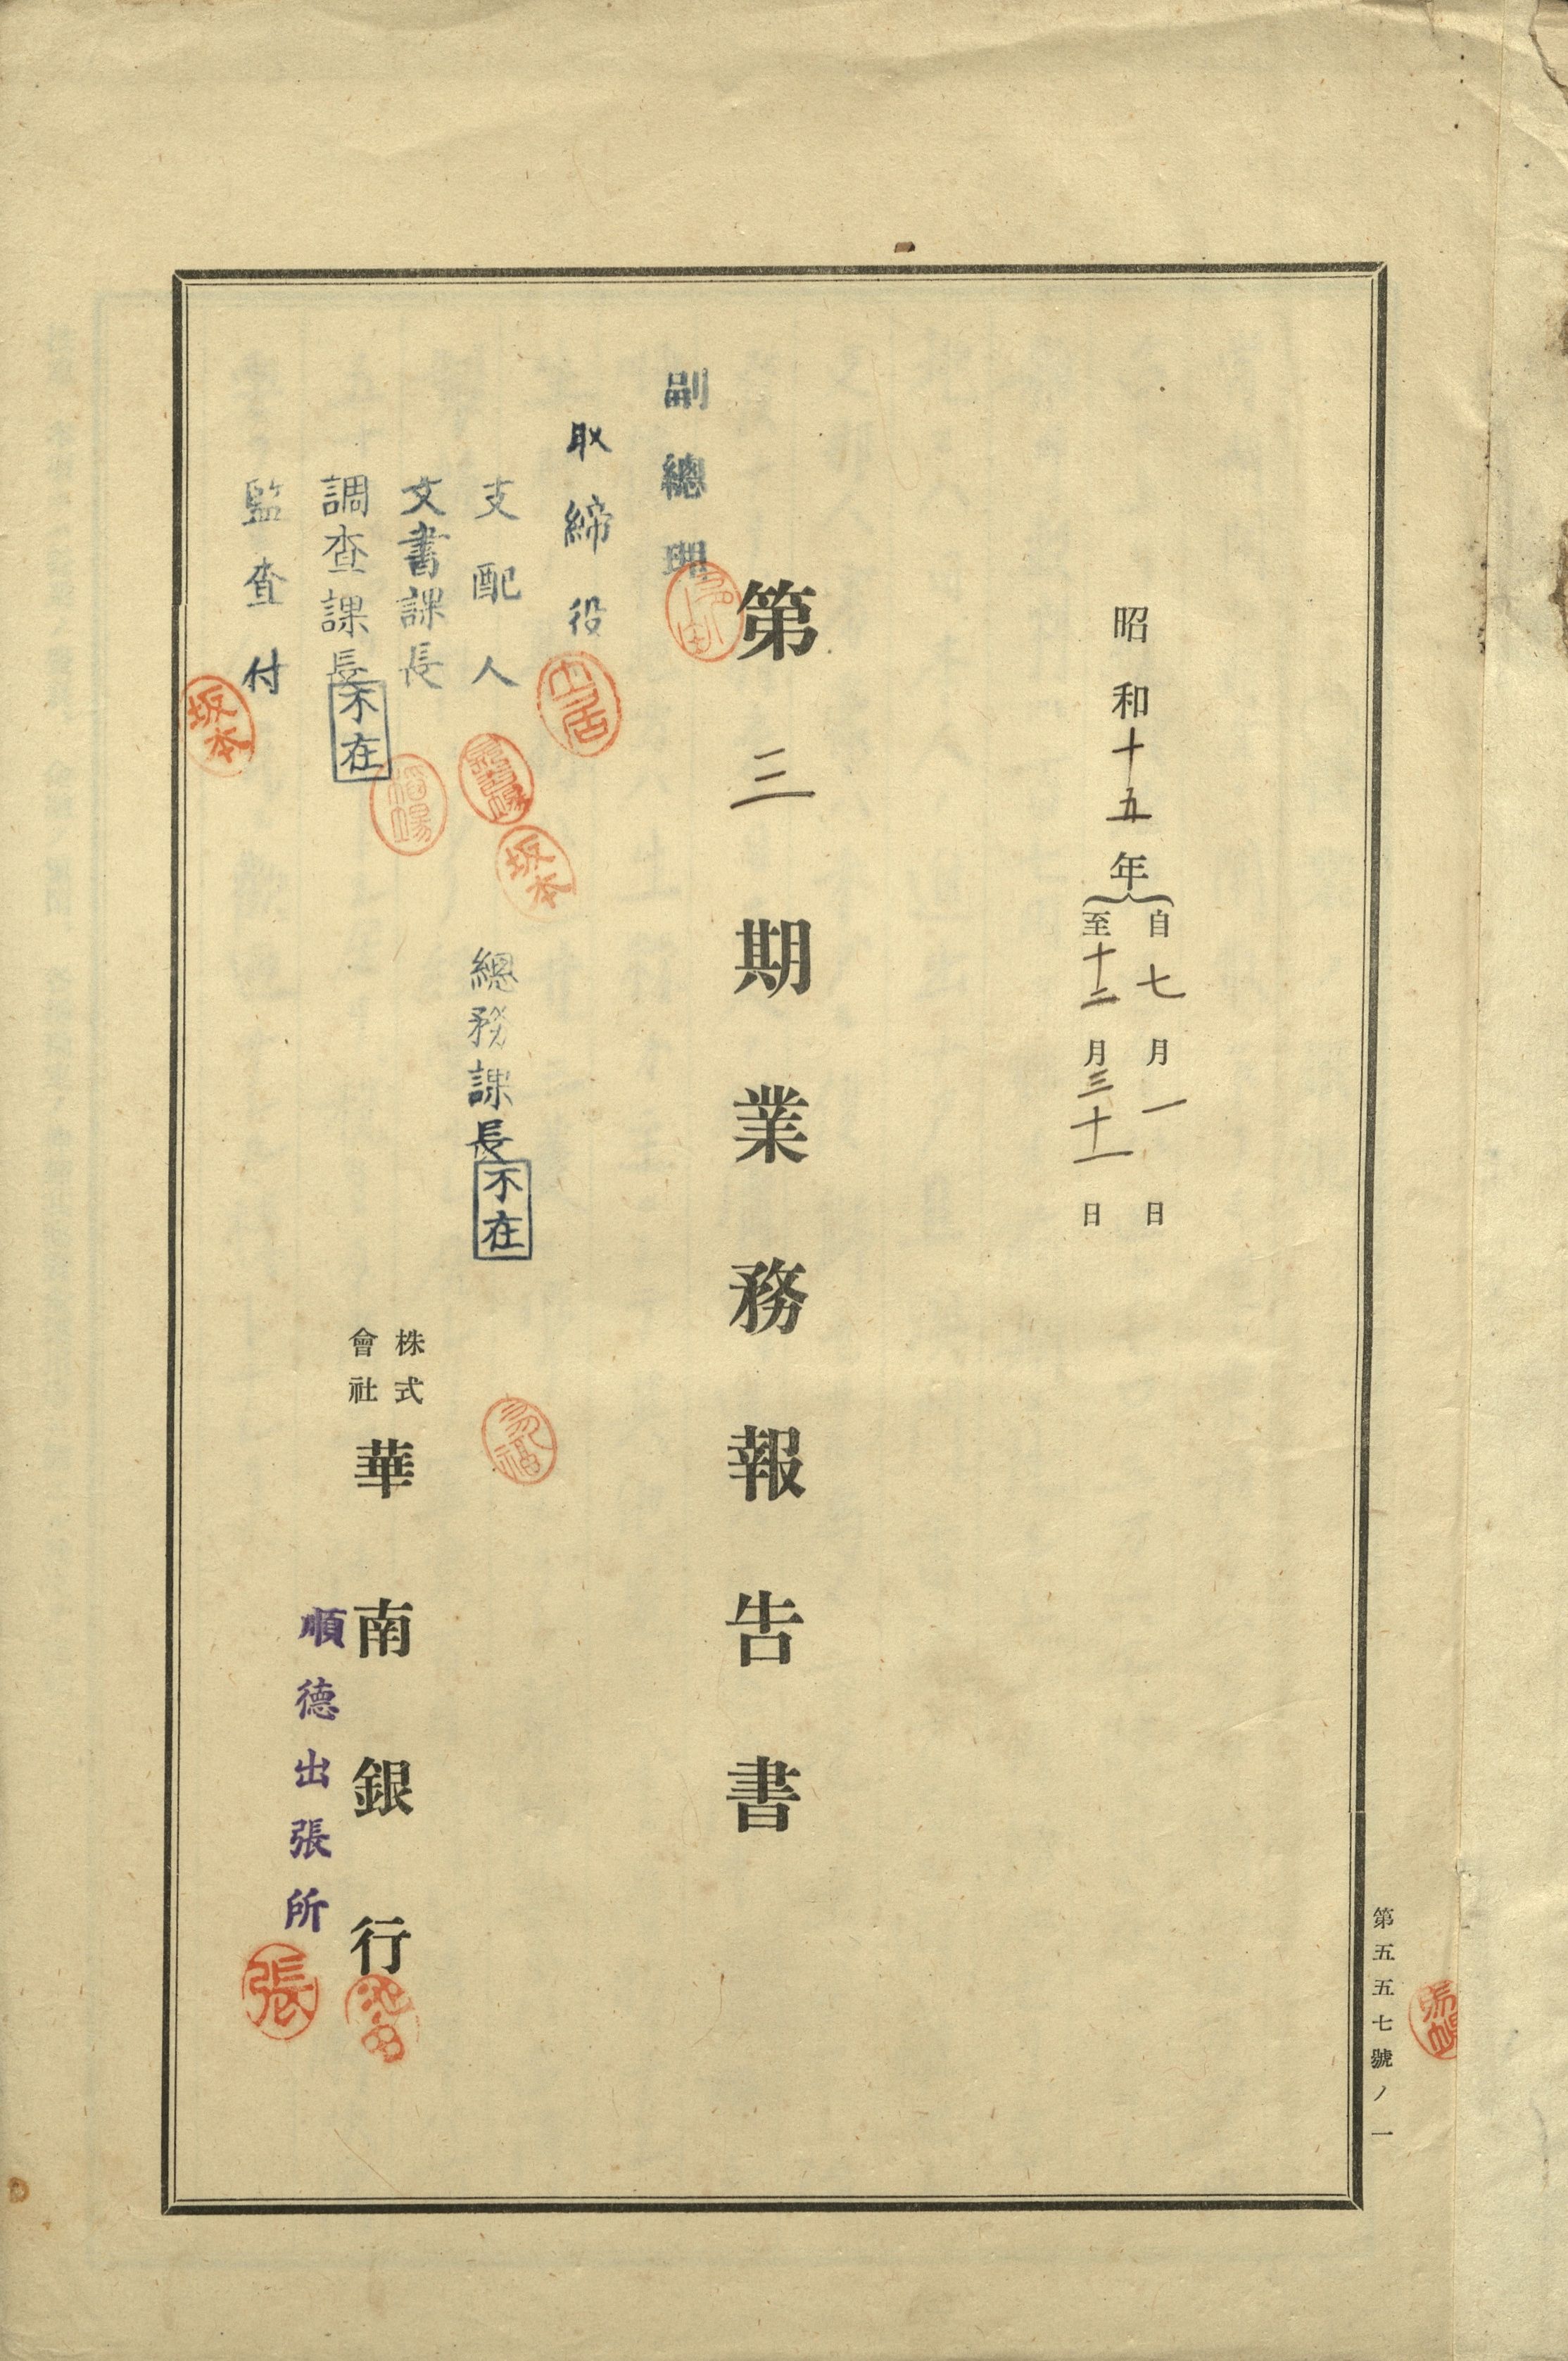 昭和十五年
自七月一日
至十二月三十一日
第三期業務報告書
副總理
取締役
支配人
坂本
總務課長
不在
文書課長
調查課長
不在
監查付
坂本
株式會社華南銀行
順德出張所
張
第五五七號ノ一